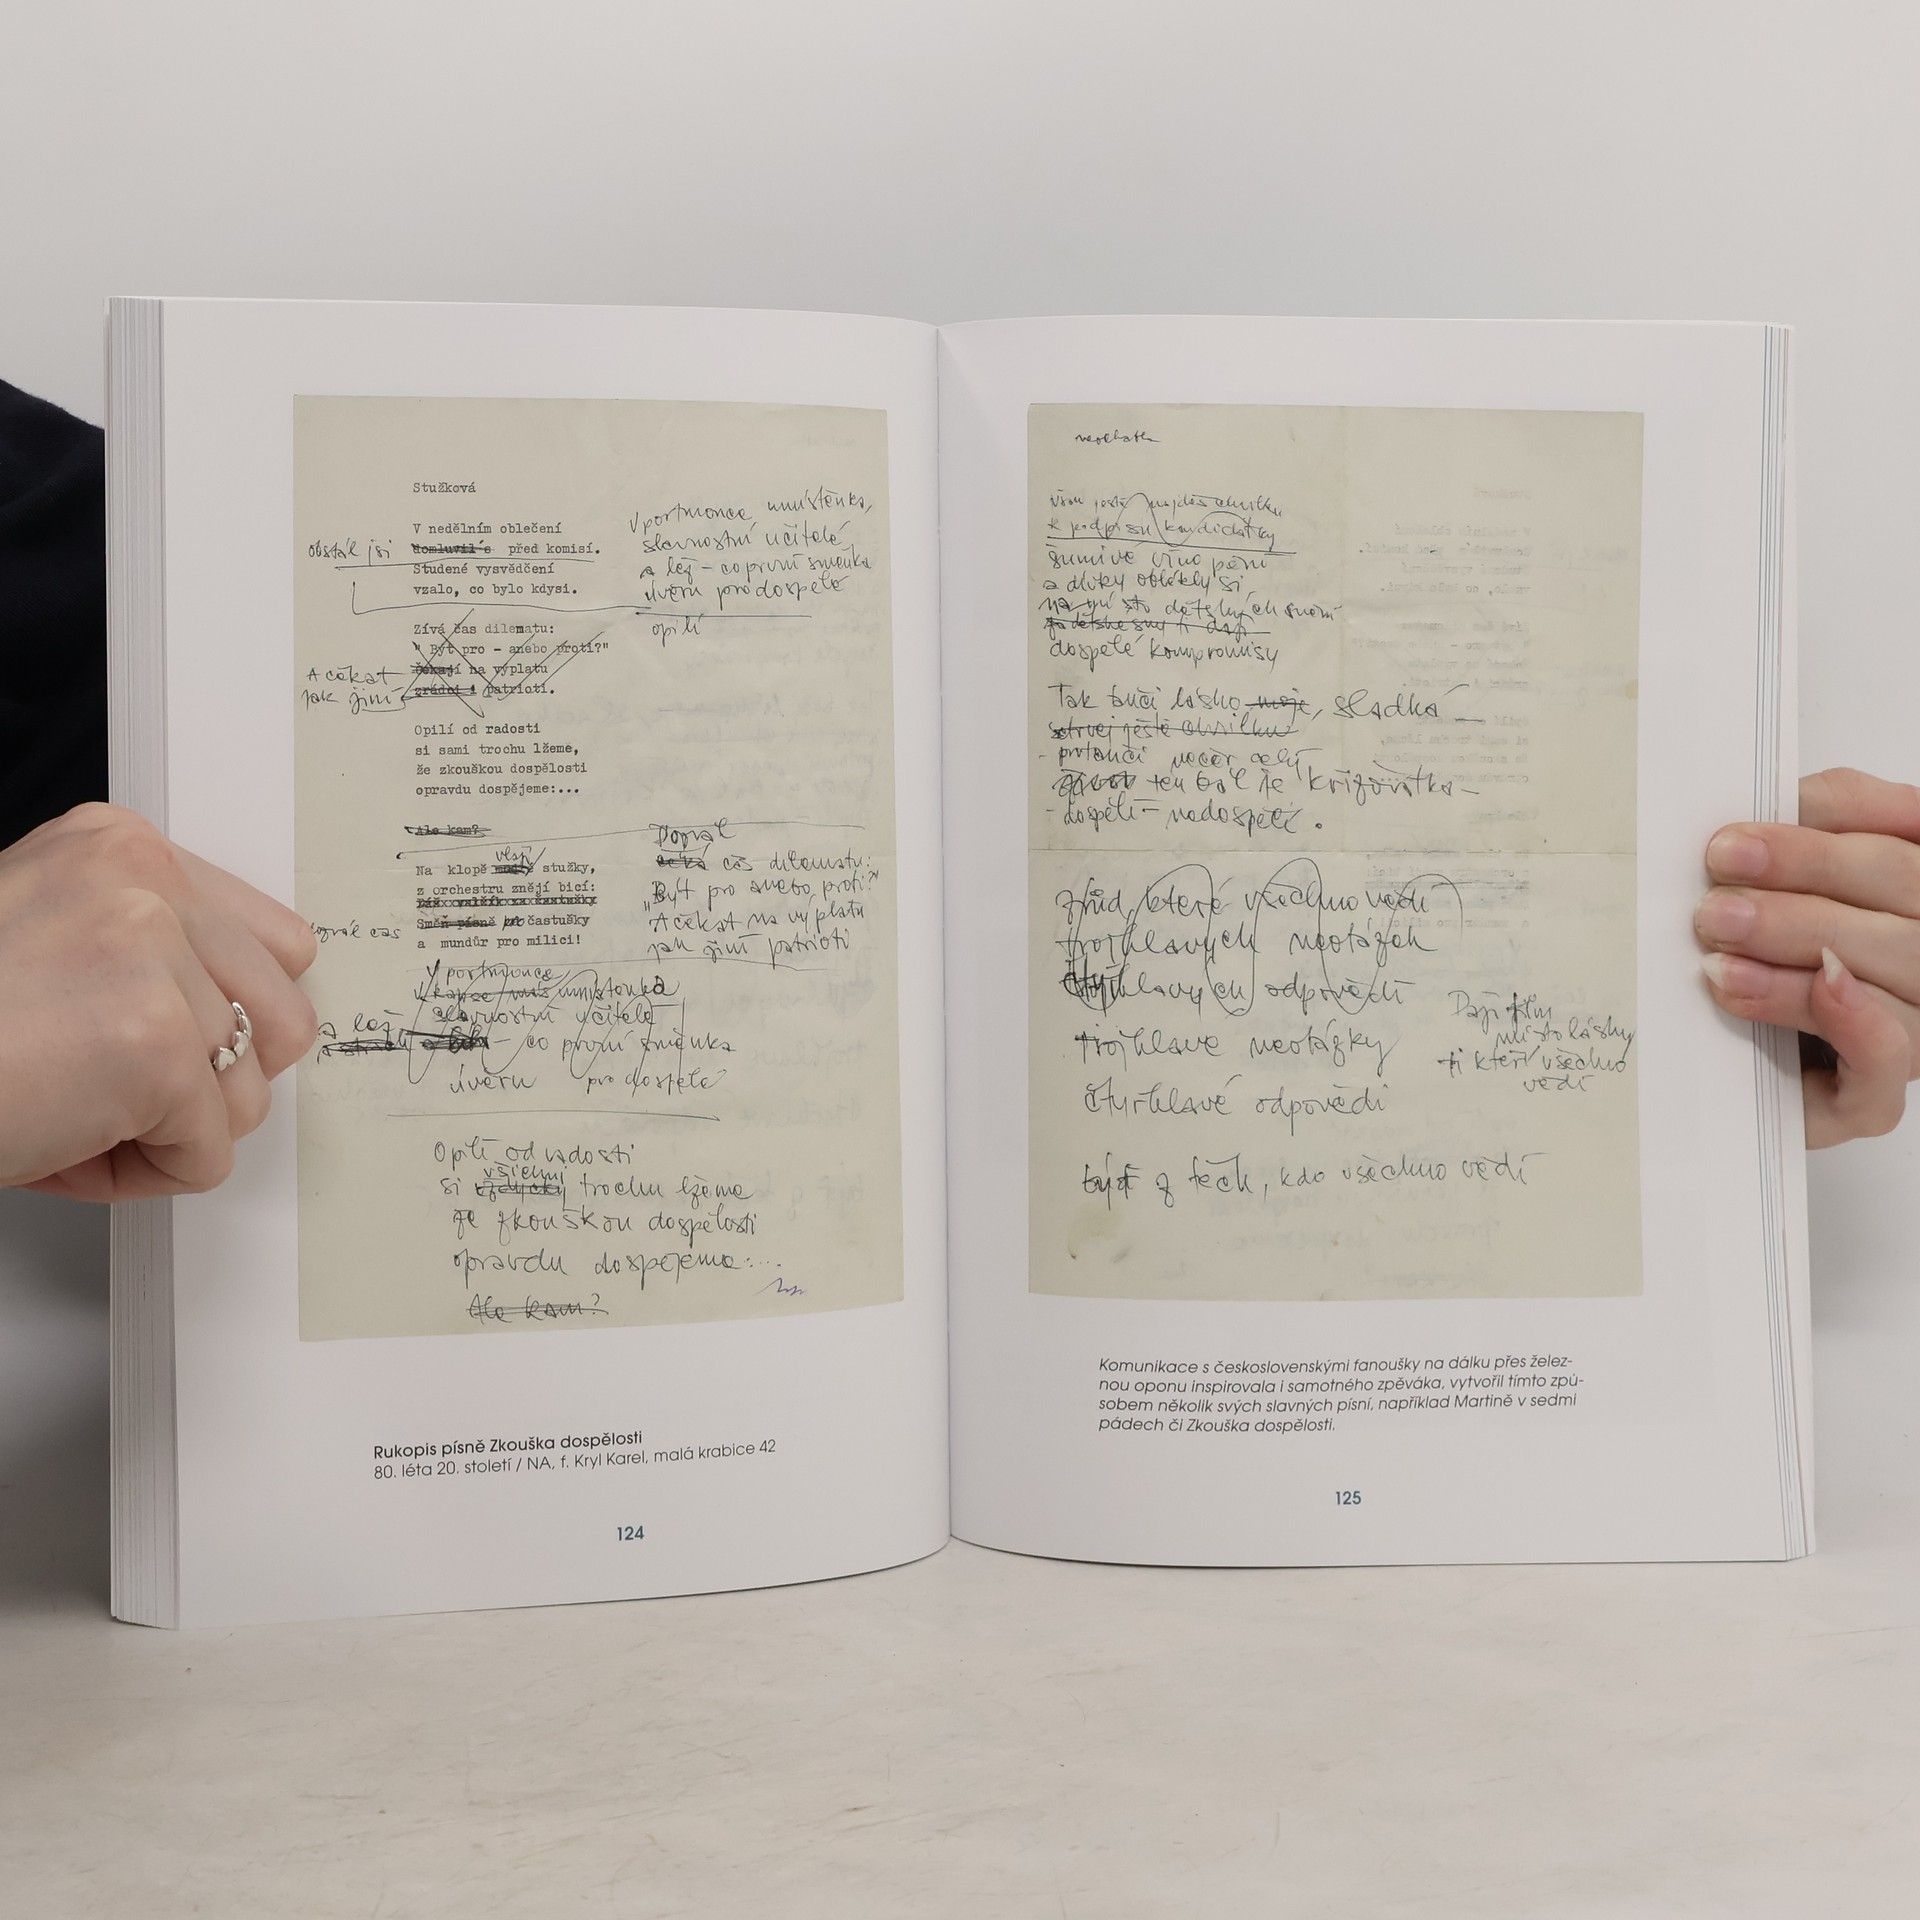 Stužková
V nedělním oblečení
obstál jsi
domluvil's před komisí.
Studené vysvědčení
vzalo, co bylo kdysi.
V portmonce umístěnka,
slavnostní učitelé
a lež – co první směnka
úvěru pro dospělé
opilí
Zívá čas dilematu:
" Být pro - anebo proti?"
A čekat
čekají na výplatu
jak jiní
zrádci i patrioti.
Opilí od radosti
si sami trochu lžeme,
že zkouškou dospělosti
opravdu dospějeme:...
Ale kam?
vlají
Na klopě stužky,
z orchestru znějí bicí:
Dáš valčík za častušky
Směň písně častušky
a mundůr pro milici!
čas
Dozrál
čas dilematu:
„Být pro anebo proti?"
A čekat na výplatu
jak jiní patrioti
V portmonce
V kapse máš umístěnka
slavnostní učitelé
a lež
– co první směnka
úvěru pro dospělé
Opilí od radosti
všichni
si vždycky trochu lžeme
že zkouškou dospělosti
opravdu dospějeme:...
Ale kam?
Rukopis písně Zkouška dospělosti
80. léta 20. století / NA, f. Kryl Karel, malá krabice 42
124
k podpisu kandidátky
šumivé víno pění
a dívky oblékly si
místo dětských snění
dospělé kompromisy
Tak tanči lásko moje, sladká –
setrvej ještě chvilku
protanči večer celý
ten bál je křižovatka –
dospělí – nedospělí.
zrůd, které všechno vědí
trojhlavých neotázek
čtyřhlavých odpovědí
trojhlavé neotázky
čtyřhlavé odpovědi
Dají film
místo lásky
ti kteří všechno
vědí
být z těch, kdo všechno vědí
Komunikace s československými fanoušky na dálku přes želez-
nou oponu inspirovala i samotného zpěváka, vytvořil tímto způ-
sobem několik svých slavných písní, například Martině v sedmi
pádech či Zkouška dospělosti.
125